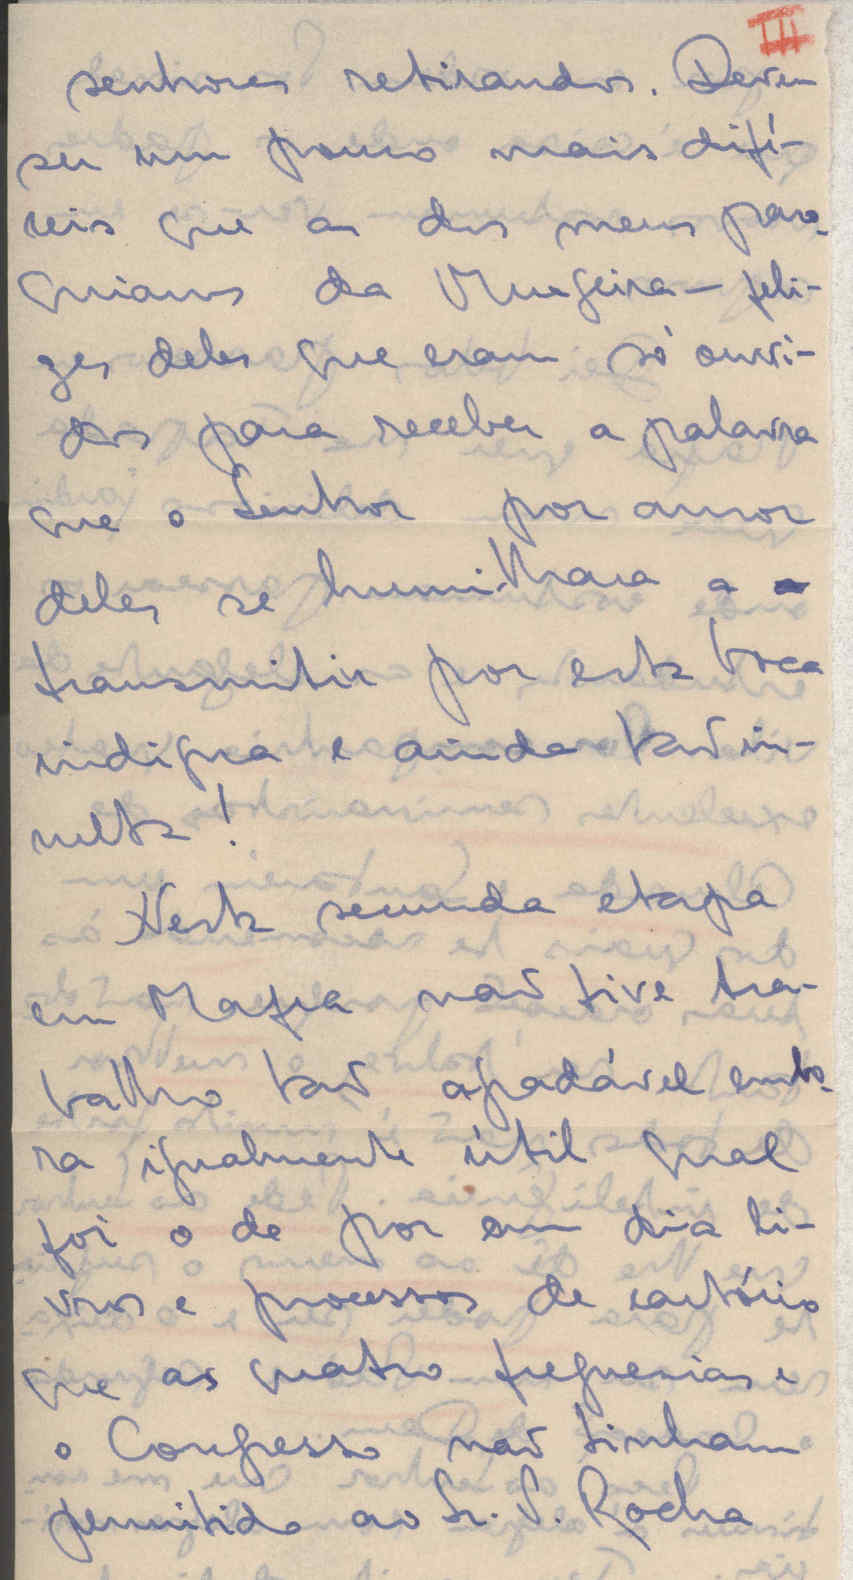 III
senhores retirandos. Devem
ser um pouco mais difí-
ceis que as dos meus paro-
quianos da Murgeira – feli-
zes deles que eram só ouvi-
dos para receber a palavra
que o Senhor por amor
deles se humilhara a
transmitir por esta boca
indigna e ainda tão in-
culta!
Nesta segunda etapa
em Mafra não tive tra-
balho tão agradável embo-
ra igualmente útil qual
foi o de por em dia li-
vros e processos de cartório
que as quatro freguesias e
o Congresso não tinham
permitido ao Sr. P. Rocha